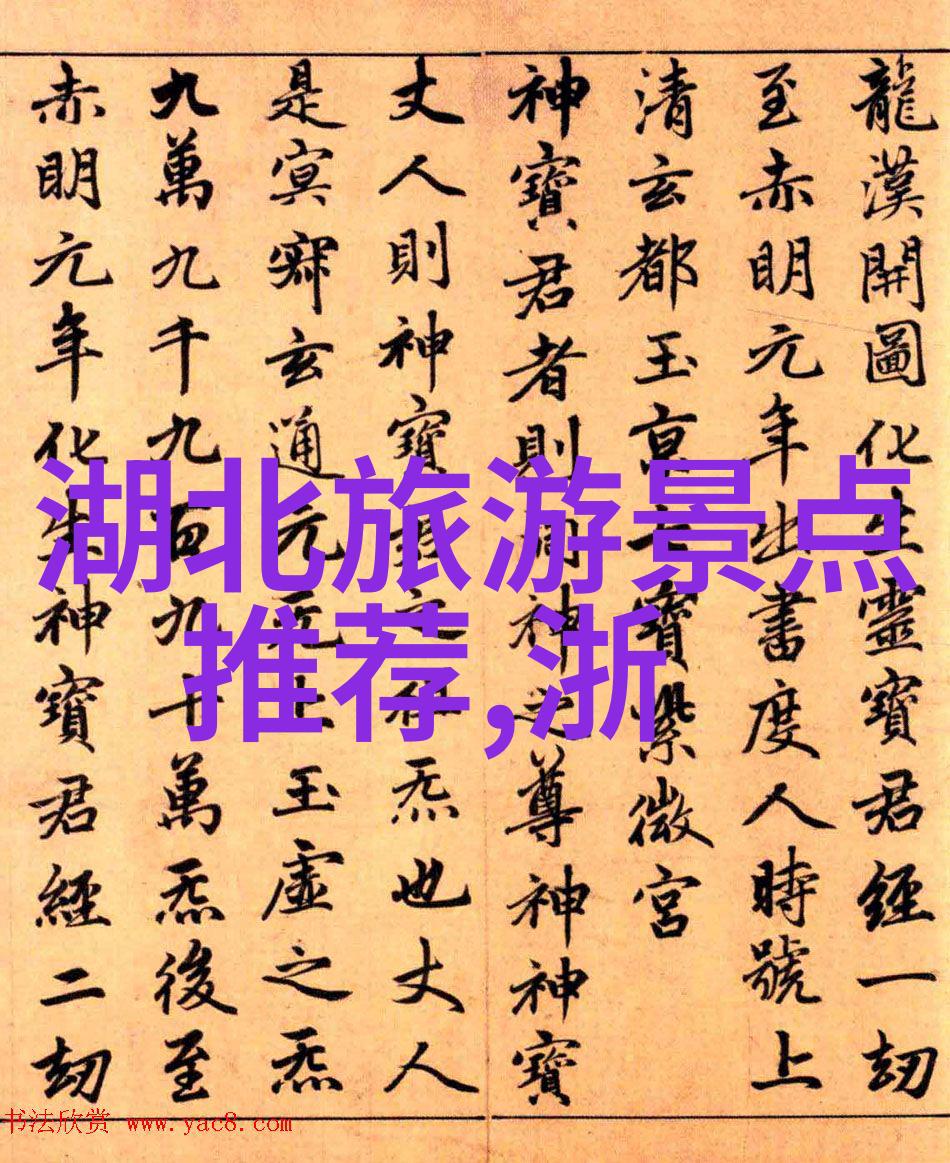 龍漢開圖化生靈寶君經一劫
至赤明元年出書度人時號上
清玄都玉京七寶紫微宮
神寶君者則洞神之尊神神寶
丈人則神寶君之祖炁也丈人
是冥寂玄通元无上玉虛之炁
九萬九千九百九十萬炁後至
赤明元年化生神寶君經二劫
湖北旅游景点
推荐,浙
书法欣赏 www.yac8.com